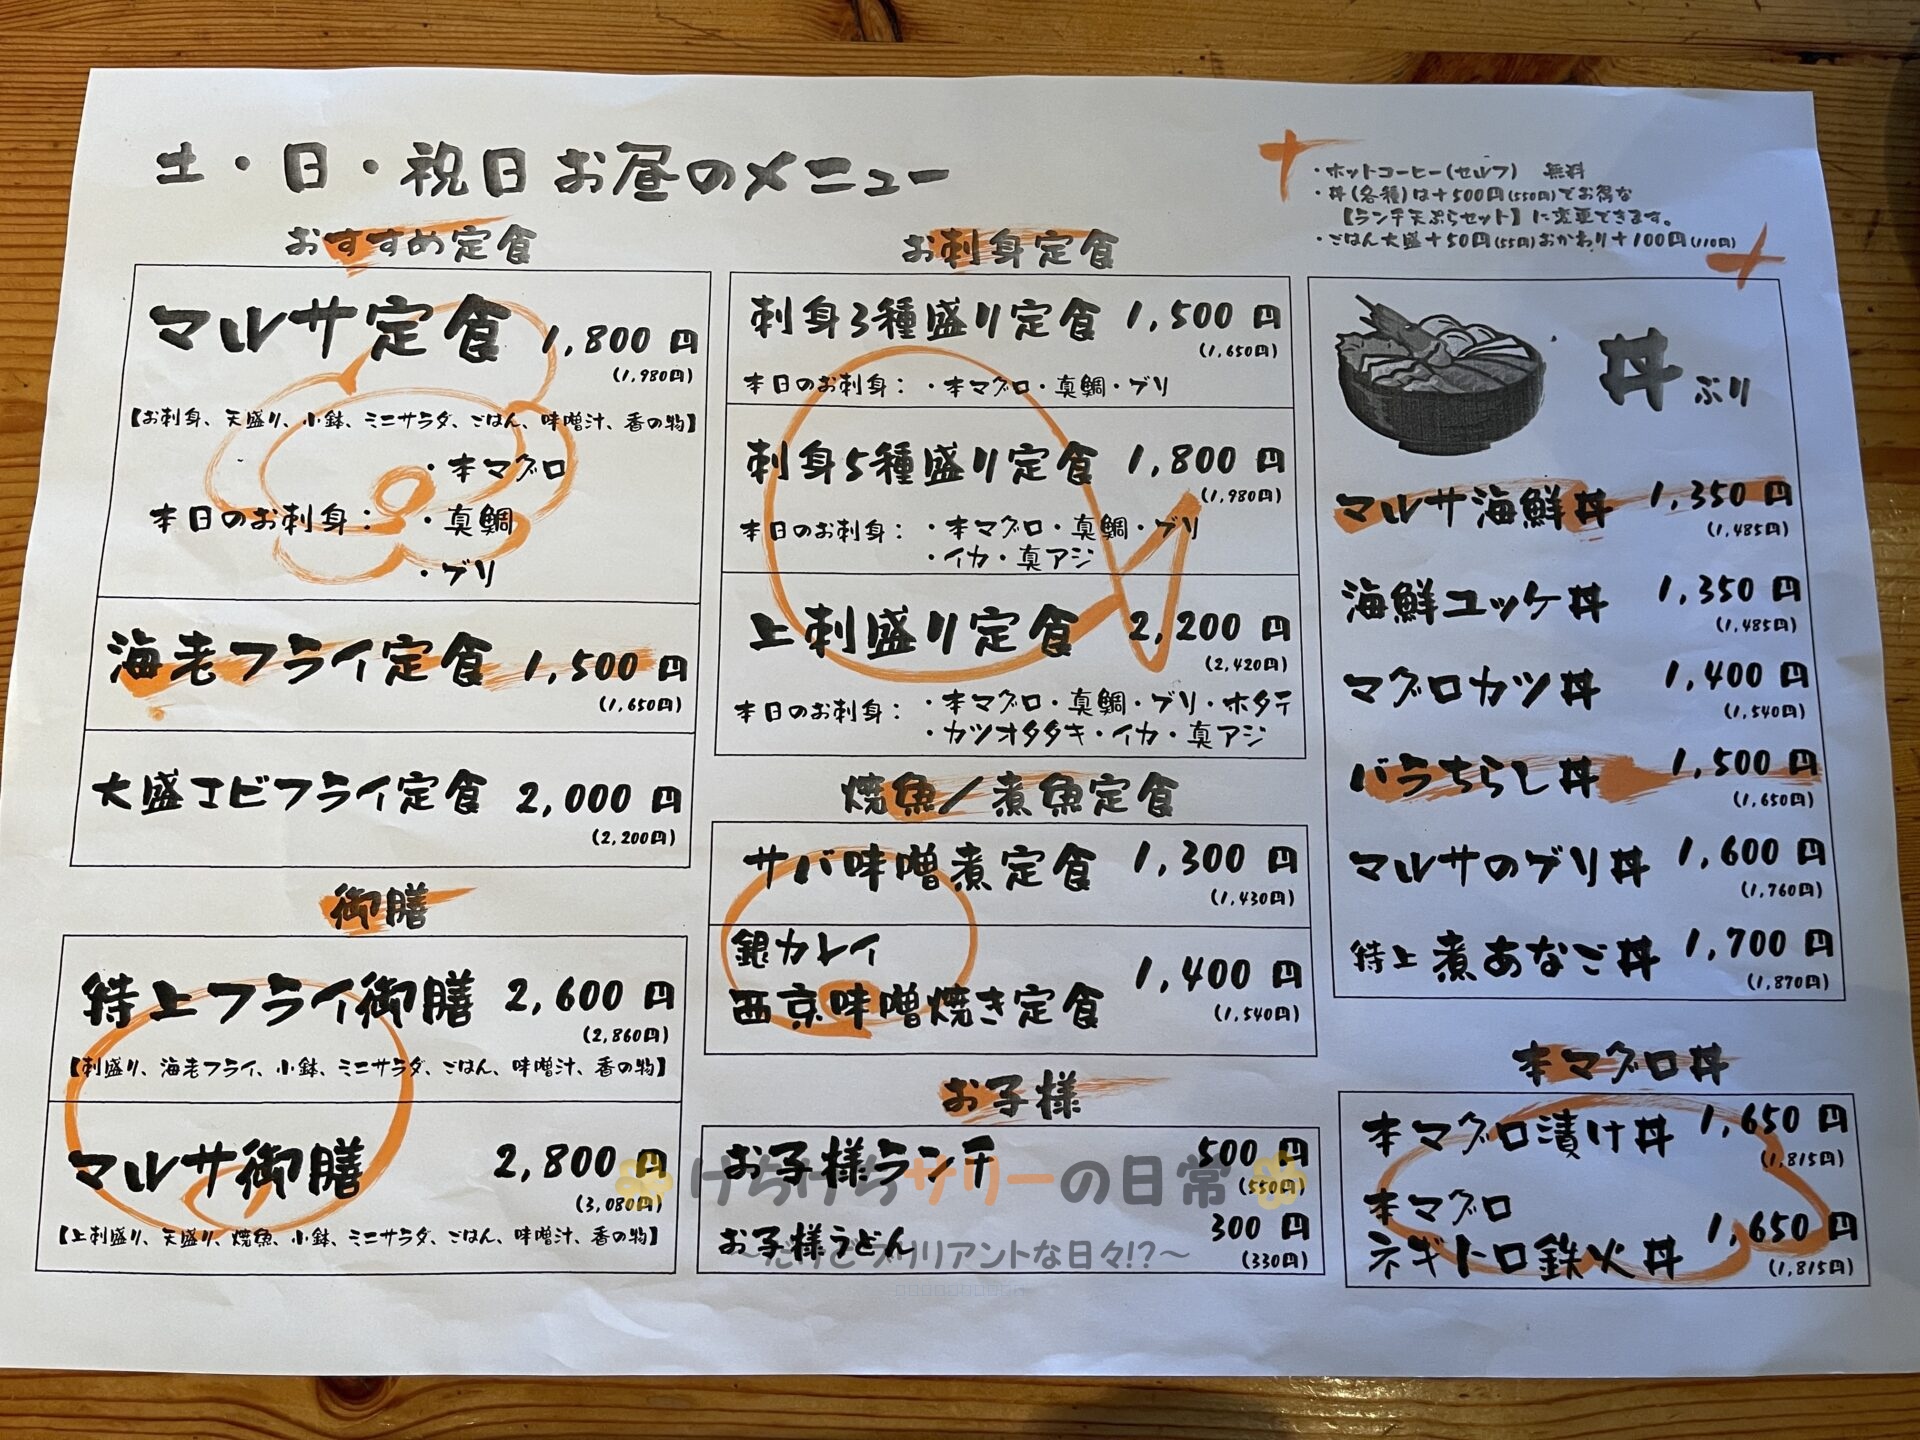 土・日・祝日お昼のメニュー
・ホットコーヒー(セルフ) 無料
・丼(各種)は+500円(550円)でお得な
【ランチ天ぷらセット】に変更できます。
・ごはん大盛+50円(55円)おかわり+100円(110円)
おすすめ定食
マルサ定食 1,800円
(1,980円)
【お刺身、天盛り、小鉢、ミニサラダ、ごはん、味噌汁、香の物】
・本マグロ
本日のお刺身: ・真鯛
・ブリ
海老フライ定食 1,500円
(1,650円)
大盛エビフライ定食 2,000円
(2,200円)
御膳
特上フライ御膳 2,600円
(2,860円)
【刺盛り、海老フライ、小鉢、ミニサラダ、ごはん、味噌汁、香の物】
マルサ御膳 2,800円
(3,080円)
【上刺盛り、天盛り、焼魚、小鉢、ミニサラダ、ごはん、味噌汁、香の物】
お刺身定食
刺身3種盛り定食 1,500円
(1,650円)
本日のお刺身: ・本マグロ・真鯛・ブリ
刺身5種盛り定食 1,800円
(1,980円)
本日のお刺身: ・本マグロ・真鯛・ブリ
・イカ・真アジ
上刺盛り定食 2,200円
(2,420円)
本日のお刺身: ・本マグロ・真鯛・ブリ・ホタテ
・カツオタタキ・イカ・真アジ
焼魚/煮魚定食
サバ味噌煮定食 1,300円
(1,430円)
銀カレイ
西京味噌焼き定食 1,400円
(1,540円)
お子様
お子様ランチ 500円
(550円)
お子様うどん 300円
(330円)
丼ぶり
マルサ海鮮丼 1,350円
(1,485円)
海鮮ユッケ丼 1,350円
(1,485円)
マグロカツ丼 1,400円
(1,540円)
バラちらし丼 1,500円
(1,650円)
マルサのブリ丼 1,600円
(1,760円)
特上煮あなご丼 1,700円
(1,870円)
本マグロ丼
本マグロ漬け丼 1,650円
(1,815円)
本マグロ
ネギトロ鉄火丼 1,650円
(1,815円)
けちけちサリーの日常
～だけどブリリアントな日々!?～